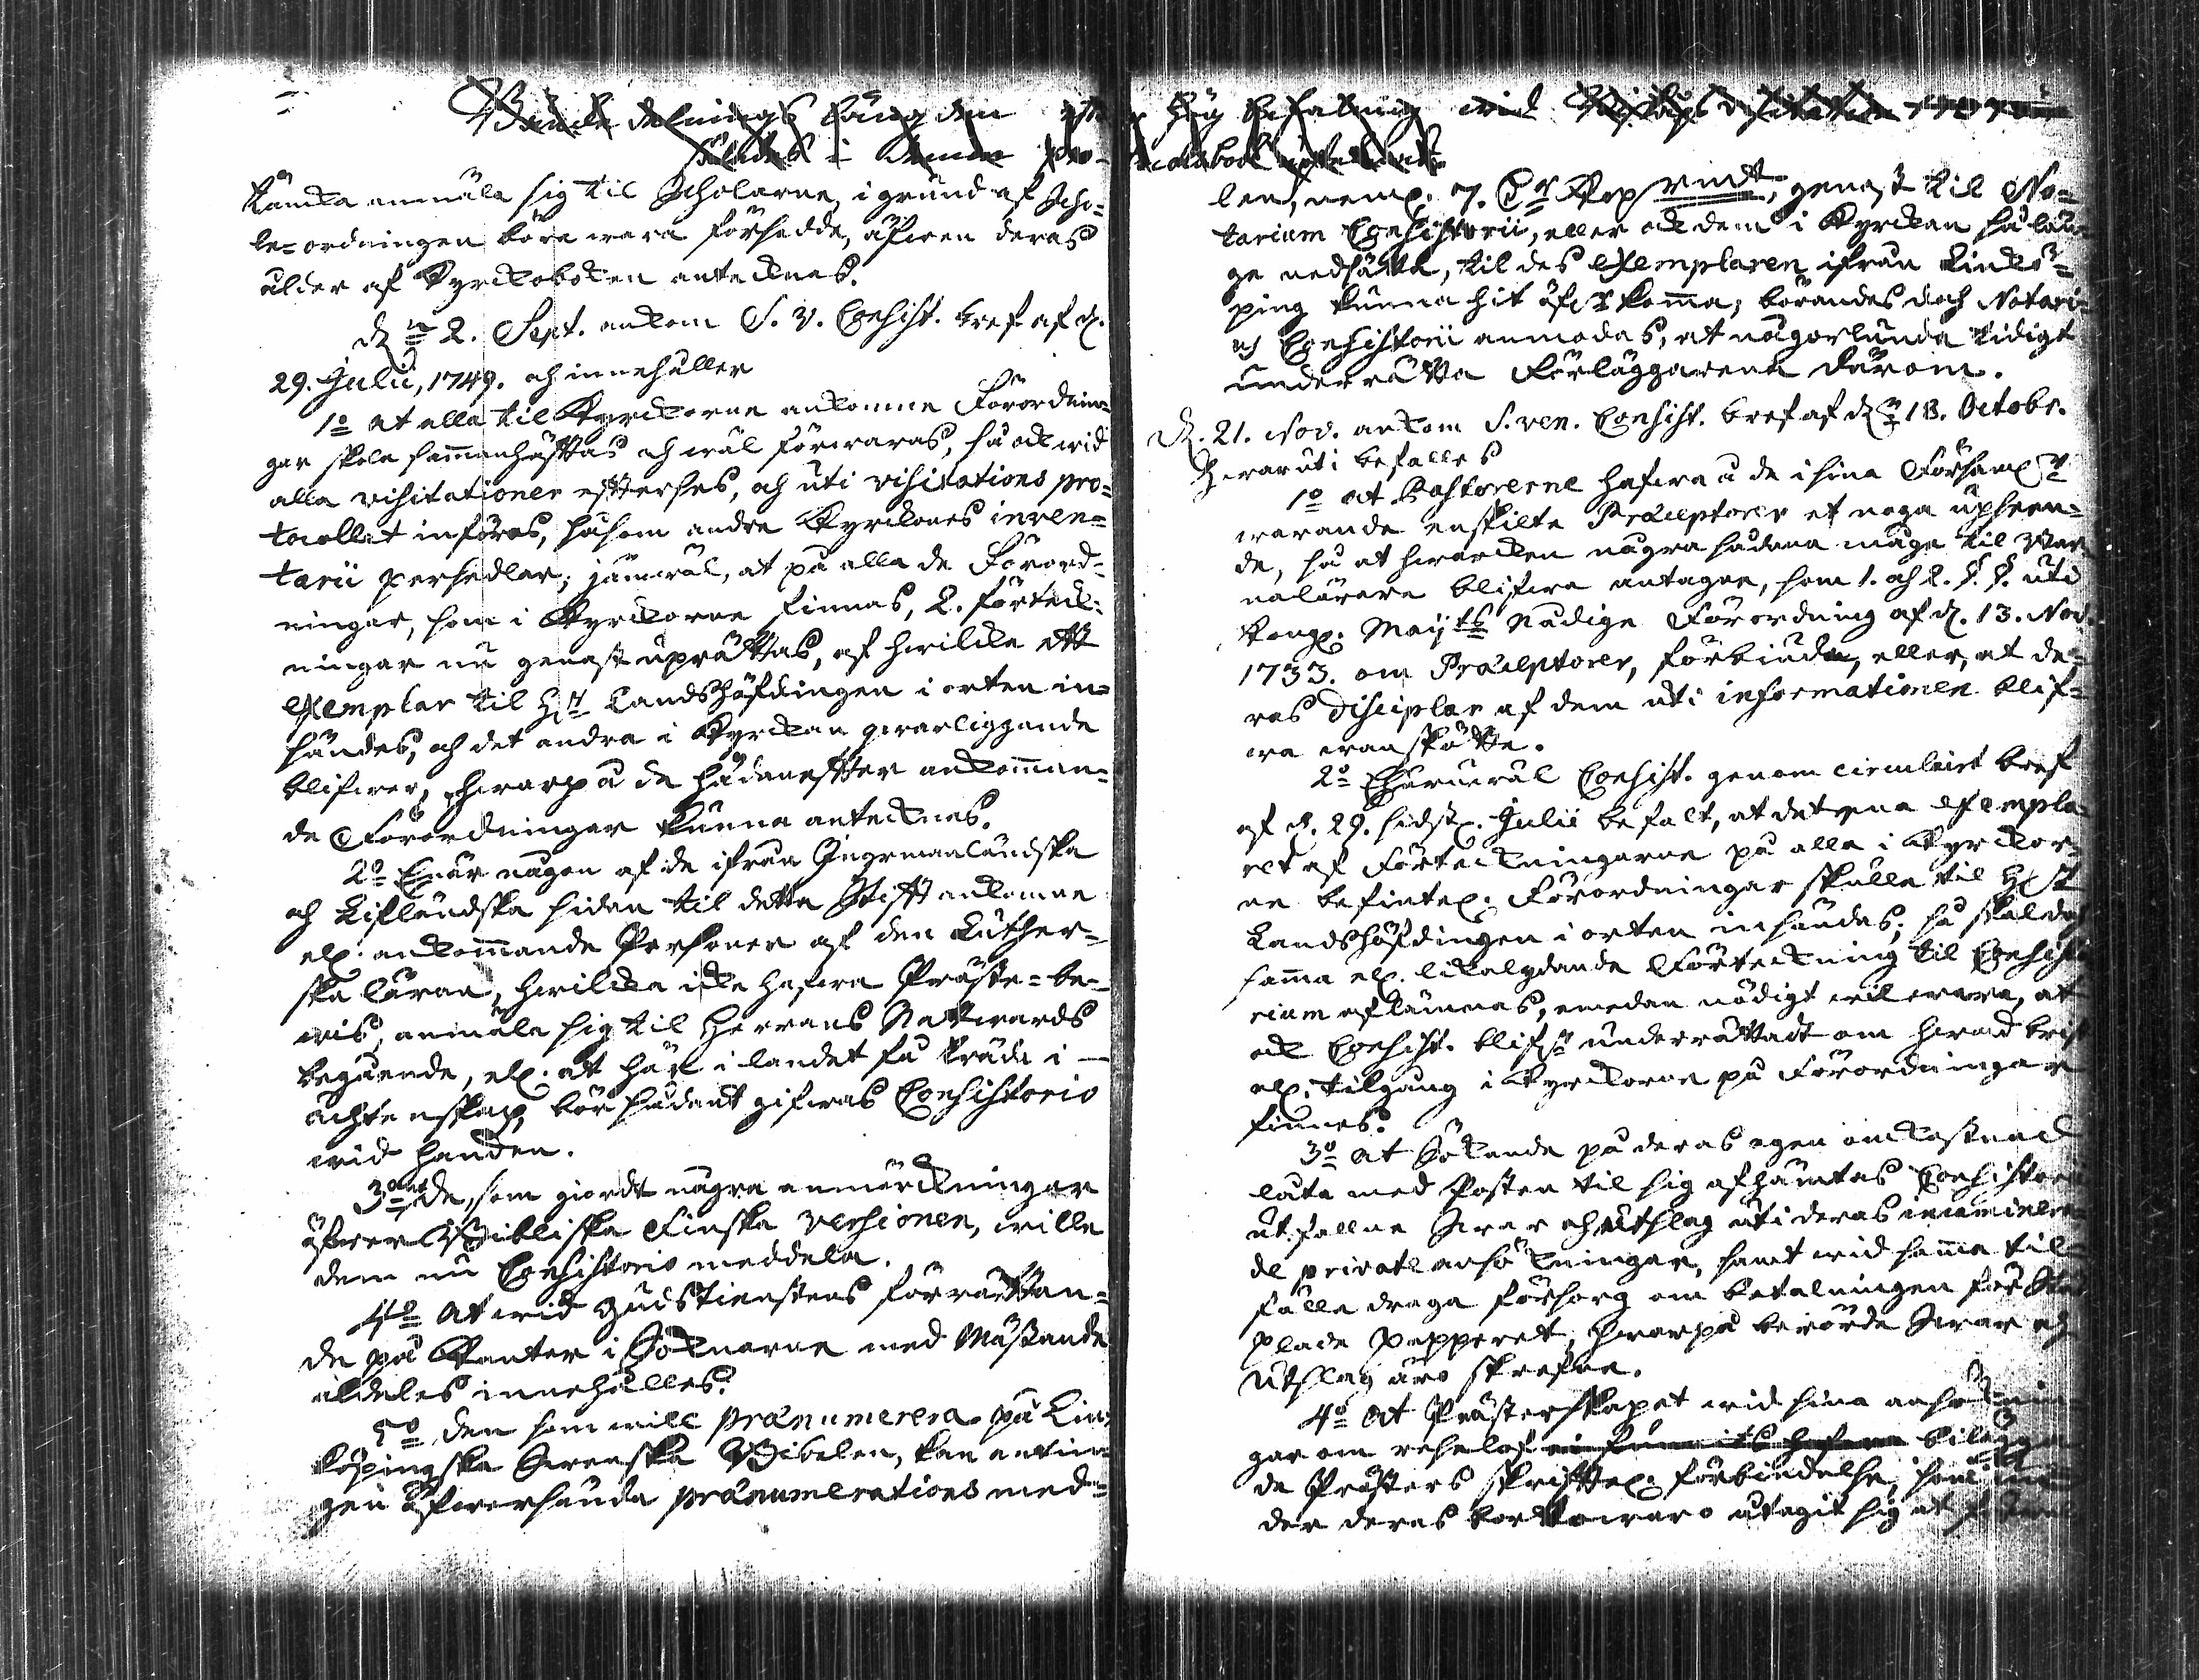 täncka anmäla sig til Scholarne, i grund af Scho-
le-ordningen böra wara försedde, äfwen deras
ålder af Kyrckoboken antecknas.
d. 2. Sept. ankom S. V. Consist. bref af d.
29. Julii, 1749. och innehåller
1o at alla til Kyrckorne ankomne Förordnin-
gar skola sammanhäfftas och wäl förwaras, så ock wid
alla visitationer effterses, och uti visitations pro-
tocollet införas, såsom andre Kyrckones inven-
tarii persedlar; jämwäl, at på alla de Förord-
ningar, som i Kyrckorne finnas, 2. förteck-
ningar nu genast uprättas, af hwilcka ett
exemplar til Hr Landshöfdingen i orten in-
händes, och det andra i Kyrckan qwarliggande
blifwer, hwarpå de hädaneffter ankomman-
de Förordningar kunna antecknas.
2o Enär någon af de ifrån Ingermanländska
och Lifländska sidan til detta Stifft ankomne
el. ankommande Personer af den Luther-
ska läran, hwilcka icke hafwa Präste-be-
wis, anmäla sig til Herrans Nattwards
begående, el. at här i landet få träda i
ächtenskap, bör sådant gifwas Consistorio
wid handen.
3o de, som giordt några anmärckningar
öfwer Bibliska Finska versionen, wille
dem nu Consistorio meddela.
4o At wid Gudstienstens förrättan-
de på Kanter i Söknarne med Mässande
aldeles innehålles.
5o den som will prænumerera på Lin-
köpingska Swenska Bibelen, kan antin-
gen öfwersända prænumerations med-
len, neml. 7. Dr Kopmt, genast til No-
tarium Consistorii, eller ock dem i Kyrckan så län-
ge nedsätta, til des Exemplaren ifrån Linkö-
ping kunna hit öfwerkomma; börandes doch Notari-
us Consistorii anmodas, at någorlunda tidigt
underrätta Förläggarena därom.
d. 21. Nov. ankom S. ven. Consist. bref af d. 18. Octobr.
hwaruti befalles
1o at Pastorerne hafwa å de i sina Församl.
warande enskilte Præceptorer et noga upseen-
de, så at hwarcken några sådana måge til Bar-
nalärare blifwa antagne, som 1. och 2. §. §. uti
Kongl. Maijts Nådige Förordning af d. 13. Nov.
1733. om Præceptorer, förbiuda, eller, at de-
ras disciplar af dem uti informationen blif-
wa wanskötte.
2o Ehuruwäl Consist. genom circulairt bref
af d. 29. sidstl. Julii befalt, at det ena exempla-
ret af Förteckningarne på alla i Kyrckor-
ne befintel. Förordningar skulle til Hr
Landshöfdingen i orten insändas; så skal doch
samma el. likalydande Förteckning til Consisto-
rium aflämnas, emedan nödigt wil wara, at
ock Consist. blifr underrättadt om hwad brist
el. tilgång i Kyrckorne på Förordningar
finnes.
3o At Sökande på deras egen omkostnad
låta med Posten til sig afhämtas Consistorii
utfallne Swar och utslag uti deras
de private ansökningar, samt wid samma til-
fälle draga försorg om betalningen för
plade Papperet, hwarpå berörde Swar och
utslag äro skrefne.
4o At Prästerskapet wid sina ansöknin-
gar om reselof bilägga
de Prästers skrifftel. förbindelse, som
der deras bortowaro utagit sig at